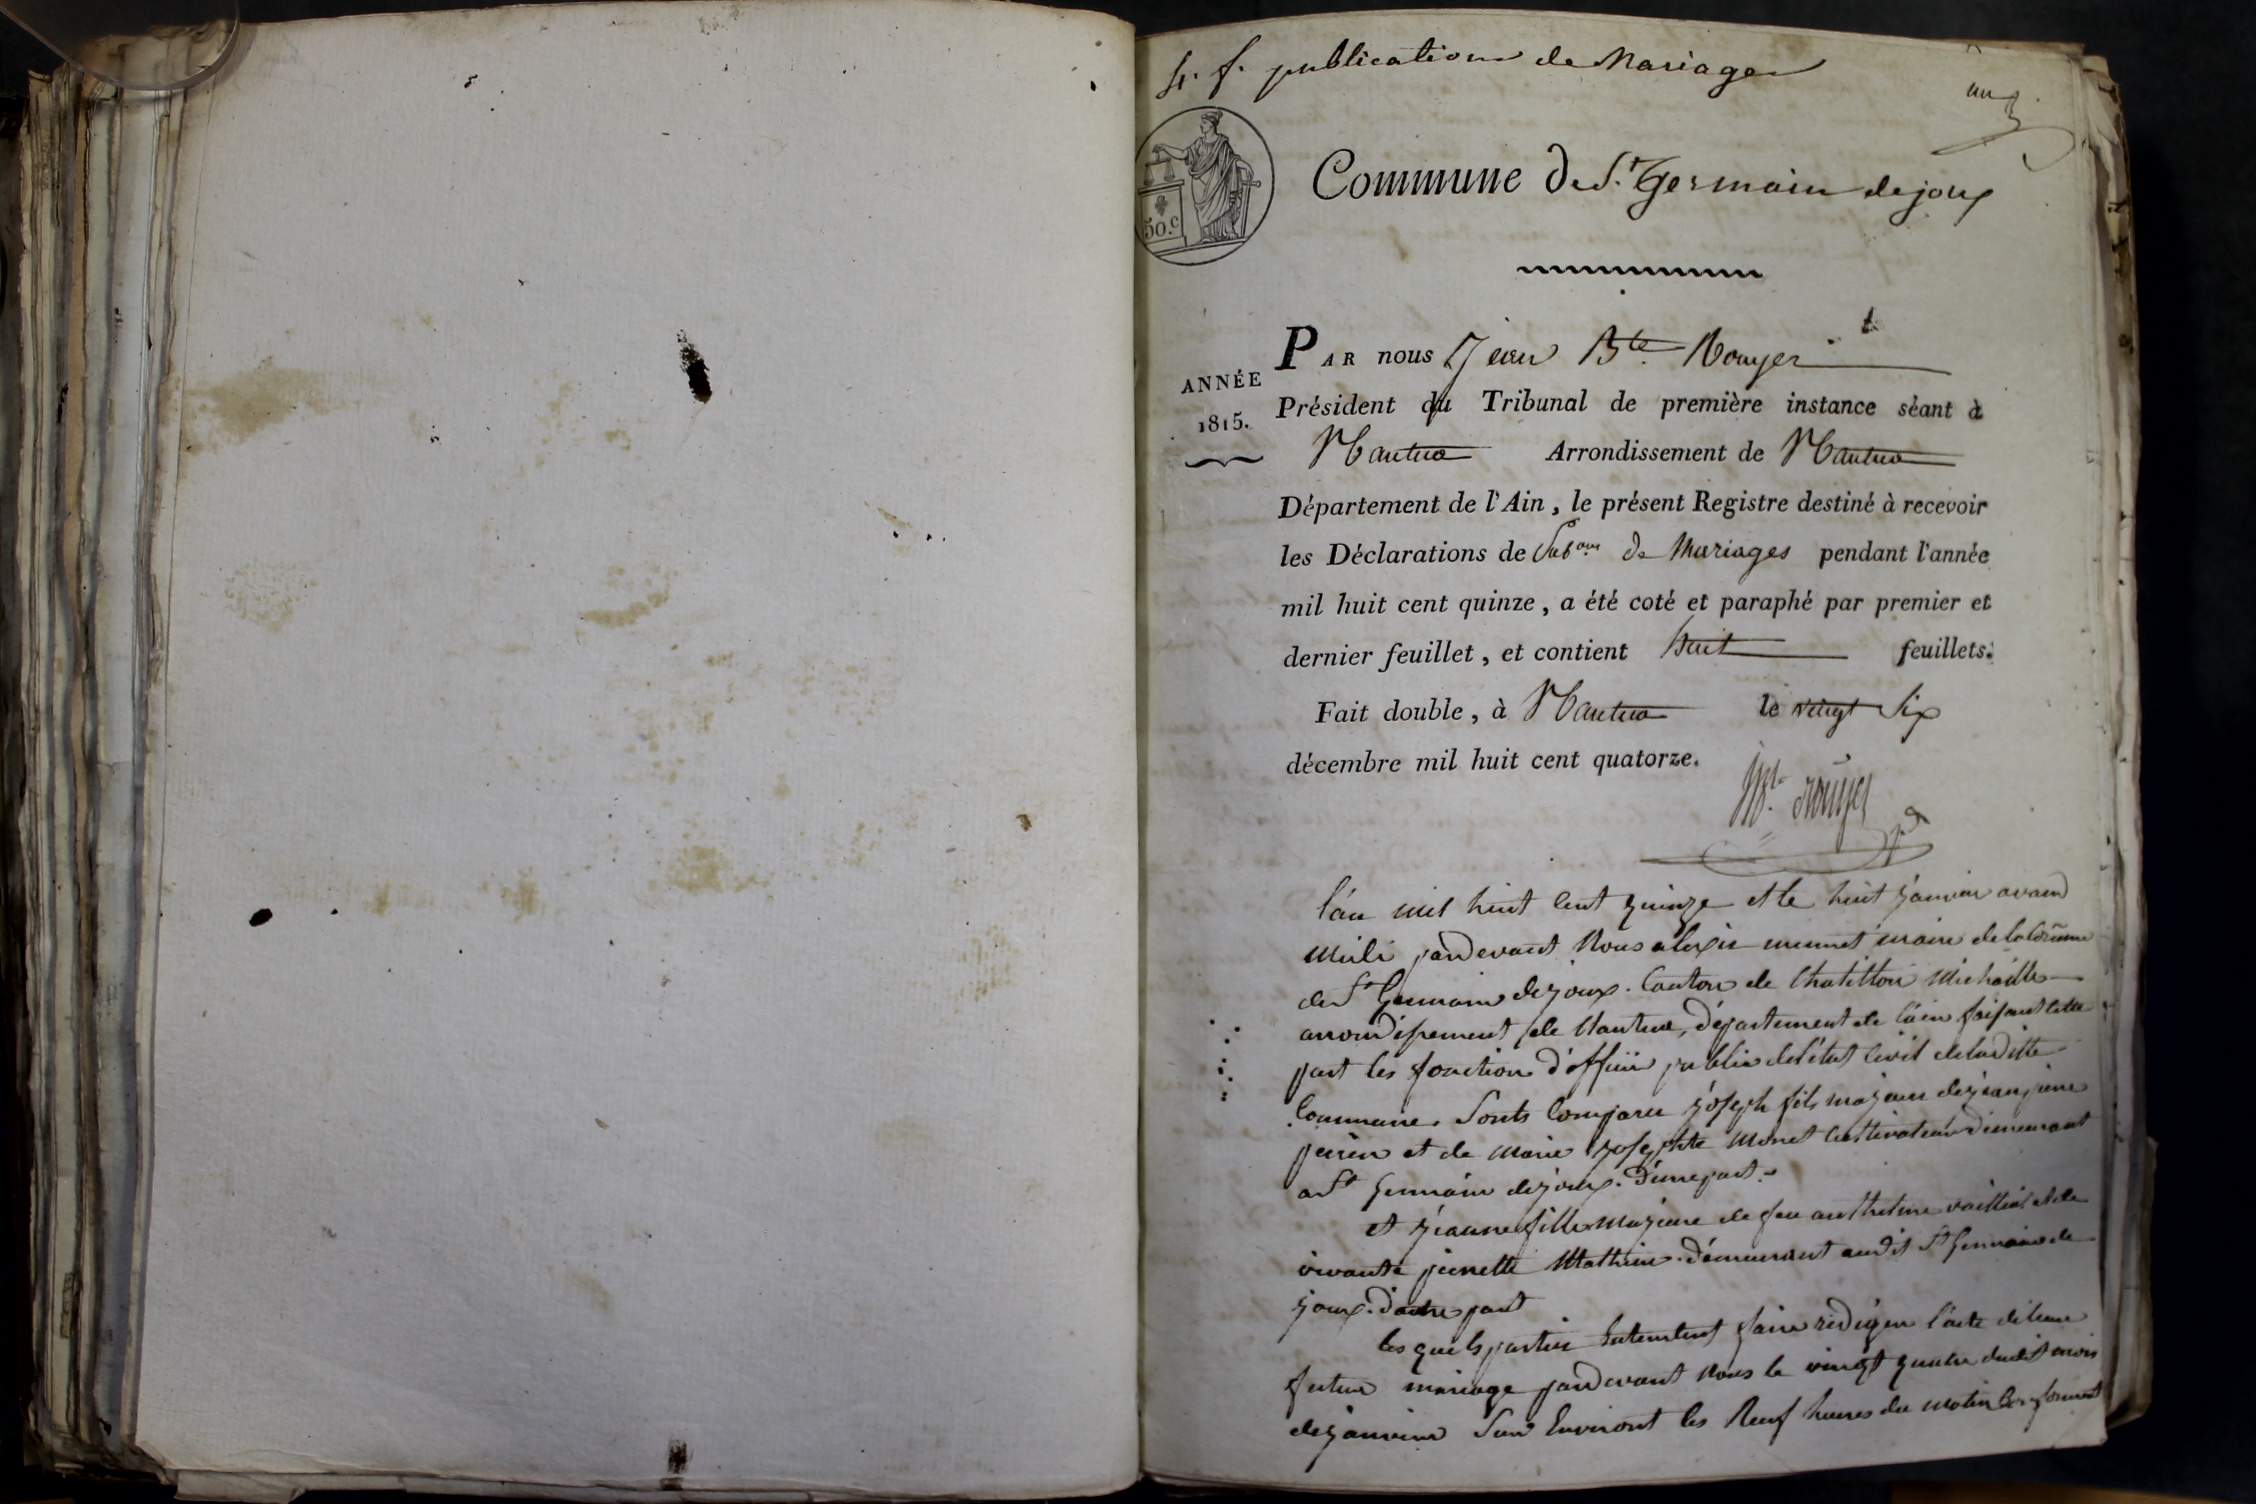 4. f. publications de Mariages
un
Commune de St. Germain de joux
50.c
PAR nous Jean Bte. Rouyer
ANNÉE
1815.
Président du Tribunal de première instance séant à
Nantua Arrondissement de Nantua
Département de l'Ain, le présent Registre destiné à recevoir
les Déclarations de Pub.ons de Mariages pendant l'année
mil huit cent quinze, a été coté et paraphé par premier et
dernier feuillet, et contient huit feuillets.
Fait double, à Nantua le vingt Six
décembre mil huit cent quatorze.
Bte. Rouyer
l'an mil huit cent quinze et le huit janvier avant
midi pardevant Nous alexis maire de la Comune
de St Germain dejoux. Canton de Chatillon Michaille
arrondisement de Nantua, département de l'ain faisant cette
part les fonction d'officier public del'état Civil deladitte
Commune. Sonts Comparu joseph fils majeur de jean
et de marie josephte Monet Cultivateur demeurant
a St Germain dejoux. d'une part.
et jeanne fille majeure de feu anthelme et de
vivante Mathieu. demeurant audit St Germain de
joux. d'autre part
les quels parties faire rédiger l'acte de leur
futur mariage pardevant Nous le vingt quatre dudit mois
de janvier Sur Environt les Neuf heures du matin Conforment